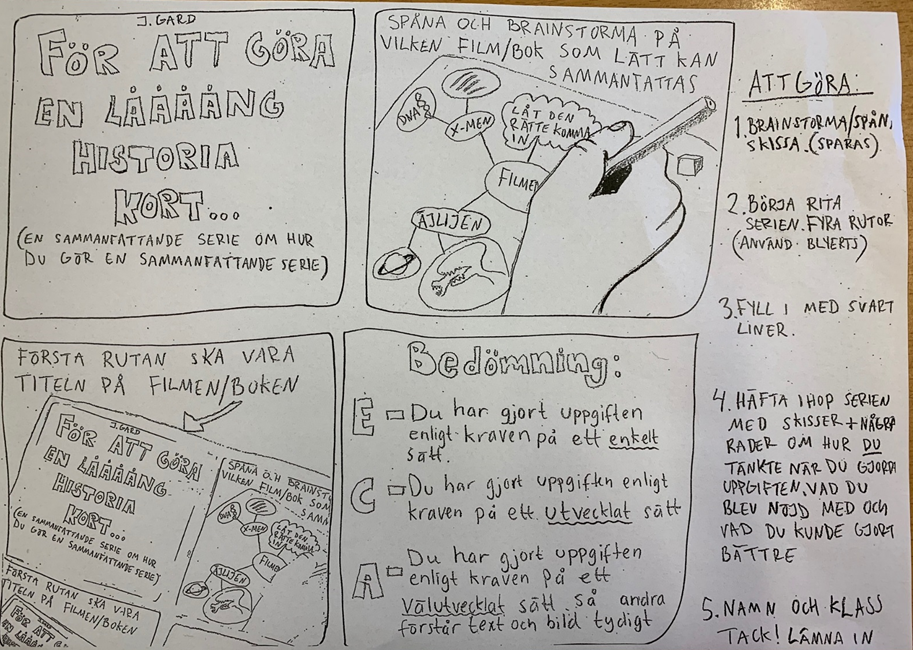 J. GARD
FÖR ATT GÖRA
EN LÅÅÅÅNG
HISTORIA
KORT...
(EN SAMMANFATTANDE SERIE OM HUR
DU GÖR EN SAMMANFATTANDE SERIE)
SPÅNA OCH BRAINSTORMA PÅ
VILKEN FILM/BOK SOM LÄTT KAN
SAMMANTATTAS
DNA
X-MEN
LÅT DEN
RÄTTE KOMMA
IN
FILME
ÄJLIJEN
FÖRSTA RUTAN SKA VARA
TITELN PÅ FILMEN/BOKEN
J. GARD
FÖR ATT GÖRA
EN LÅÅÅÅNG
HISTORIA
KORT...
(EN SAMMANFATTANDE SERIE OM HUR
DU GÖR EN SAMMANFATTANDE SERIE)
SPÅNA OCH BRAINSTO
VILKEN FILM/BOK SOM
SAMMA
DNA
X-MEN
LÅT DEN
RÄTTE KOMMA
IN
FILME
ÄJLIJEN
FÖRSTA RUTAN SKA VARA
TITELN PÅ FILMEN/BOKEN
FÖR ATT
EN LÅÅÅ
Bedömning:
E - Du har gjort uppgiften
enligt kraven på ett enkelt
sätt.
C - Du har gjort uppgiften enligt
kraven på ett utvecklat sätt
A - Du har gjort uppgiften
enligt kraven på ett
välutvecklat sätt. Så andra
förstår text och bild tydligt
ATT GÖRA:
1. BRAINSTORMA/SPÅN,
SKISSA. (SPARAS)
2. BÖRJA RITA
SERIEN. FYRA RUTOR
(ANVÄND BLYERTS)
3. FYLL I MED SVART
LINER.
4. HÄFTA IHOP SERIEN
MED SKISSER + NÅGRA
RADER OM HUR DU
TÄNKTE NÄR DU GJORDE
UPPGIFTEN, VAD DU
BLEV NÖJD MED OCH
VAD DU KUNDE GJORT
BÄTTRE
5. NAMN OCH KLASS
TACK! LÄMNA IN